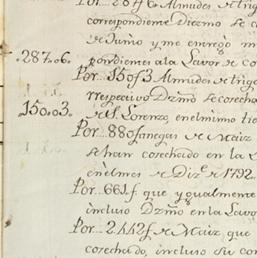 Por... 287 f 6 Almudes de trigo
correspondiene Diezmo se c
de Junio y me entregó m
287.06. pondienes a la Lavor de co
Por... 150 f 3 Almudes de trigo
150.03. rrespectivo Dzmõ se cosecha
de S. Lorenzo, en el mismo tie
Por... 880 fanegas de Maiz
se han cosechado en la L
en el mes de Diz.e de 1792.
Por... 661 f. que ygualmente
incluso Dzmõ en la Lavo
Por... 2.442 f. de Maiz que
cosechado, incluso su co